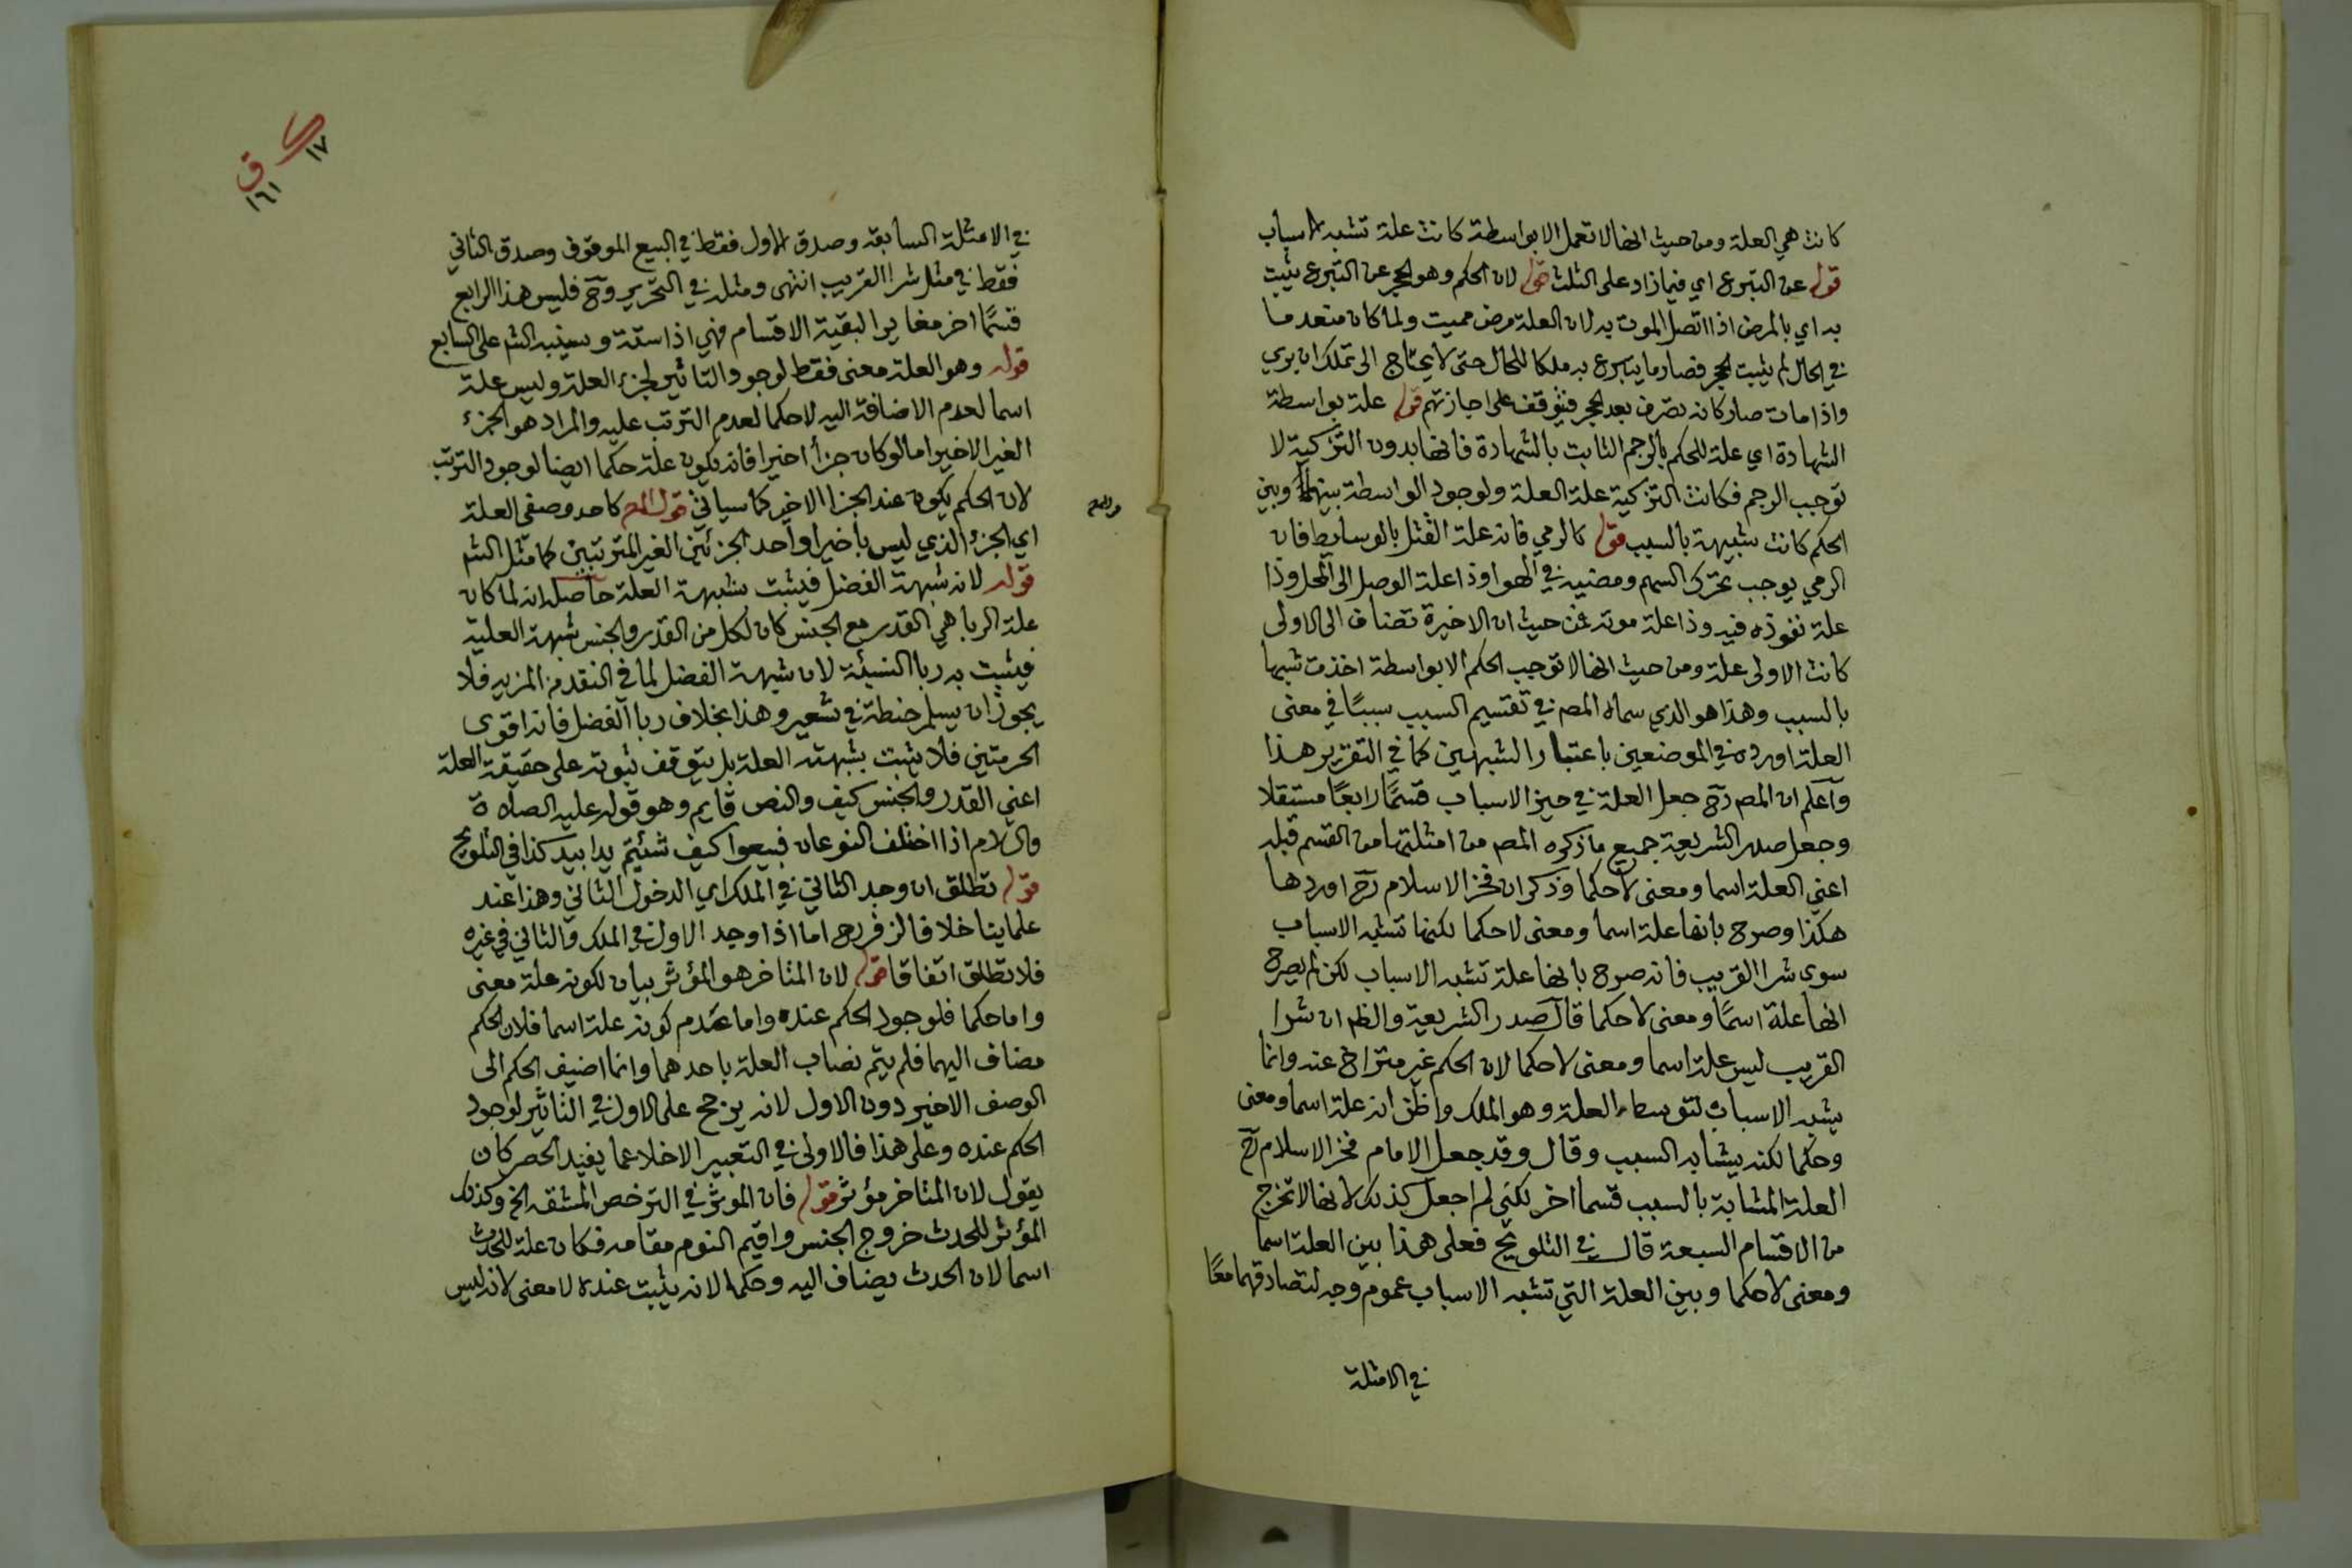 كانت هي العلة ومن حيث انها لا تعمل الا بواسطة كانت علة تشبه الاسباب
قوله عن التبرع اي فيما زاد على الثلث قوله لان الحكم وهو الحجر عن التبرع يثبت
به اي بالمرض اذا اتصل الموت به لان العلة مرض مميت ولما كان منعدما
في الحال لم يثبت الحجر فصار ما يتبرع به ملكا للحال حتى لا يحتاج الى تملك ان بري
واذا مات صار كانه تصرف بعد الحجر فيتوقف على اجازتهم قوله علة بواسطة
الشهادة اي علة للحكم بالرجم الثابت بالشهادة فانها بدون التزكية لا
توجب الرجم فكانت التزكية علة العلة ولوجود الواسطة بينها وبين
الحكم كانت شبيهة بالسبب قوله كالرمي فانه علة القتل بالوسايط فان
الرمي يوجب تحرك السهم ومضيه في الهوا وذا علة الوصل الى المحل وذا
علة نفوذه فيه وذا علة موته فمن حيث ان الاخيرة تضاف الى الاولى
كانت الاولى علة ومن حيث انها لا توجب الحكم الا بواسطة اخذت شبها
بالسبب وهذا هو الذي سماه المص في تقسيم السبب سببًا في معنى
العلة اورده في الموضعين باعتبار الشبهين كما في التقرير هذا
واعلم ان المص رح جعل العلة في حيز الاسباب قسمًا رابعًا مستقلا
وجعل صدر الشريعة جميع ما ذكره المص من امثلتها من القسم قبله
اعني العلة اسما ومعنى لا حكما وذكر ان فخر الاسلام رح اوردها
هكذا وصرح بانها علة اسما ومعنى لا حكما لكنها تشبه الاسباب
سوى شرا القريب فانه صرح بانها علة تشبه الاسباب لكن لم يصرح
انها علة اسمًا ومعنى لا حكما قال صدر الشريعة والظ ان شرا
القريب ليس علة اسما ومعنى لا حكما لان الحكم غير متراخ عنه وانما
يشبه الاسباب لتوسط العلة وهو الملك واظن انه علة اسما ومعنى
وحكما لكنه يشابه السبب وقال وقد جعل الامام فخر الاسلام رح
العلة المشابة بالسبب قسما اخر لكني لم اجعل كذلك لانها لا تخرج
من الاقسام السبعة قال في التلويح فعلى هذا بين العلة اسما
ومعنى لا حكما وبين العلة التي تشبه الاسباب عموم وجه لتصادقهما معًا
في الامثلة
١٧
ق
١٦١
في الامثلة السابقة وصدق الاول فقط في البيع الموقوف وصدق الثاني
فقط في مثل شرا القريب انتهى ومثله في التحرير وح فليس هذا الرابع
قسمًا اخر مغايرا لبقية الاقسام فهي اذا ستة وسينبه الش على السابع
قوله وهو العلة معنى فقط لوجود التاثير لجزء العلة وليس علة
اسما لعدم الاضافة اليه لا حكما لعدم الترتب عليه والمراد هو الجزء
الغير الاخير اما لو كان جزأ اخيرا فانه يكون علة حكما ايضا لوجود الترتب
لان الحكم يكون عند الجزا الاخير كما سياتي قول المص كاحد وصفي العلة
اي الجزء الذي ليس باخير او احد الجزئين الغير المترتبين كما مثل الش
قوله لانه شبهة الفضل فيثبت بشبهة العلة حاصله انه لما كان
علة الربا هي القدر مع الجنس كان لكل من القدر والجنس شبهة العلية
فيثبت به ربا النسيئة لان شبهة الفضل لما في النقد من المزيه فلا
يجوز ان يسلم حنطة في شعير وهذا بخلاف ربا الفضل فانه اقوى
الحرمتين فلا يثبت بشبهة العلة بل يتوقف ثبوته على حقيقة العلة
اعني القدر والجنس كيف والنص قايم وهو قوله عليه الصلاة
والسلام اذا اختلف النوعان فبيعوا كيف شئتم يدا بيد كذا في التلويح
قوله تطلق ان وجد الثاني في الملك اي الدخول الثاني وهذا عند
علماينا خلافا لزفر رح اما اذا وجد الاول في الملك والثاني في غيره
فلا تطلق اتفاقا قوله لان المتاخر هو المؤثر بيان لكونه علة معنى
واما حكما فلوجود الحكم عنده واما عدم كونه علة اسما فلان الحكم
مضاف اليهما فلم يتم نصاب العلة باحدهما وانما اضيف الحكم الى
الوصف الاخير دون الاول لانه يرجح على الاول في التاثير لوجود
الحكم عنده وعلى هذا فالاولى في التعبير الاخلا عما يفيد الحصر كان
يقول لان المتاخر مؤثر قوله فان الموثر في الترخص المشقة الخ وكذلك
المؤثر للحدث خروج الجنس واقيم النوم مقامه فكان علة للحدث
اسما لان الحدث يضاف اليه وحكما لانه يثبت عنده لا معنى لانه ليس